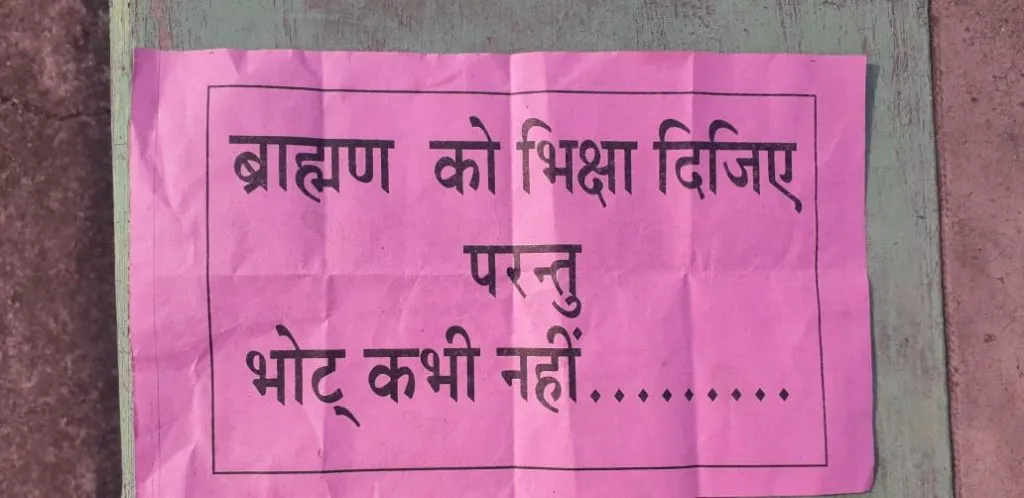 ब्राह्मण को भिक्षा दिजिए
परन्तु
भोट् कभी नहीं.........